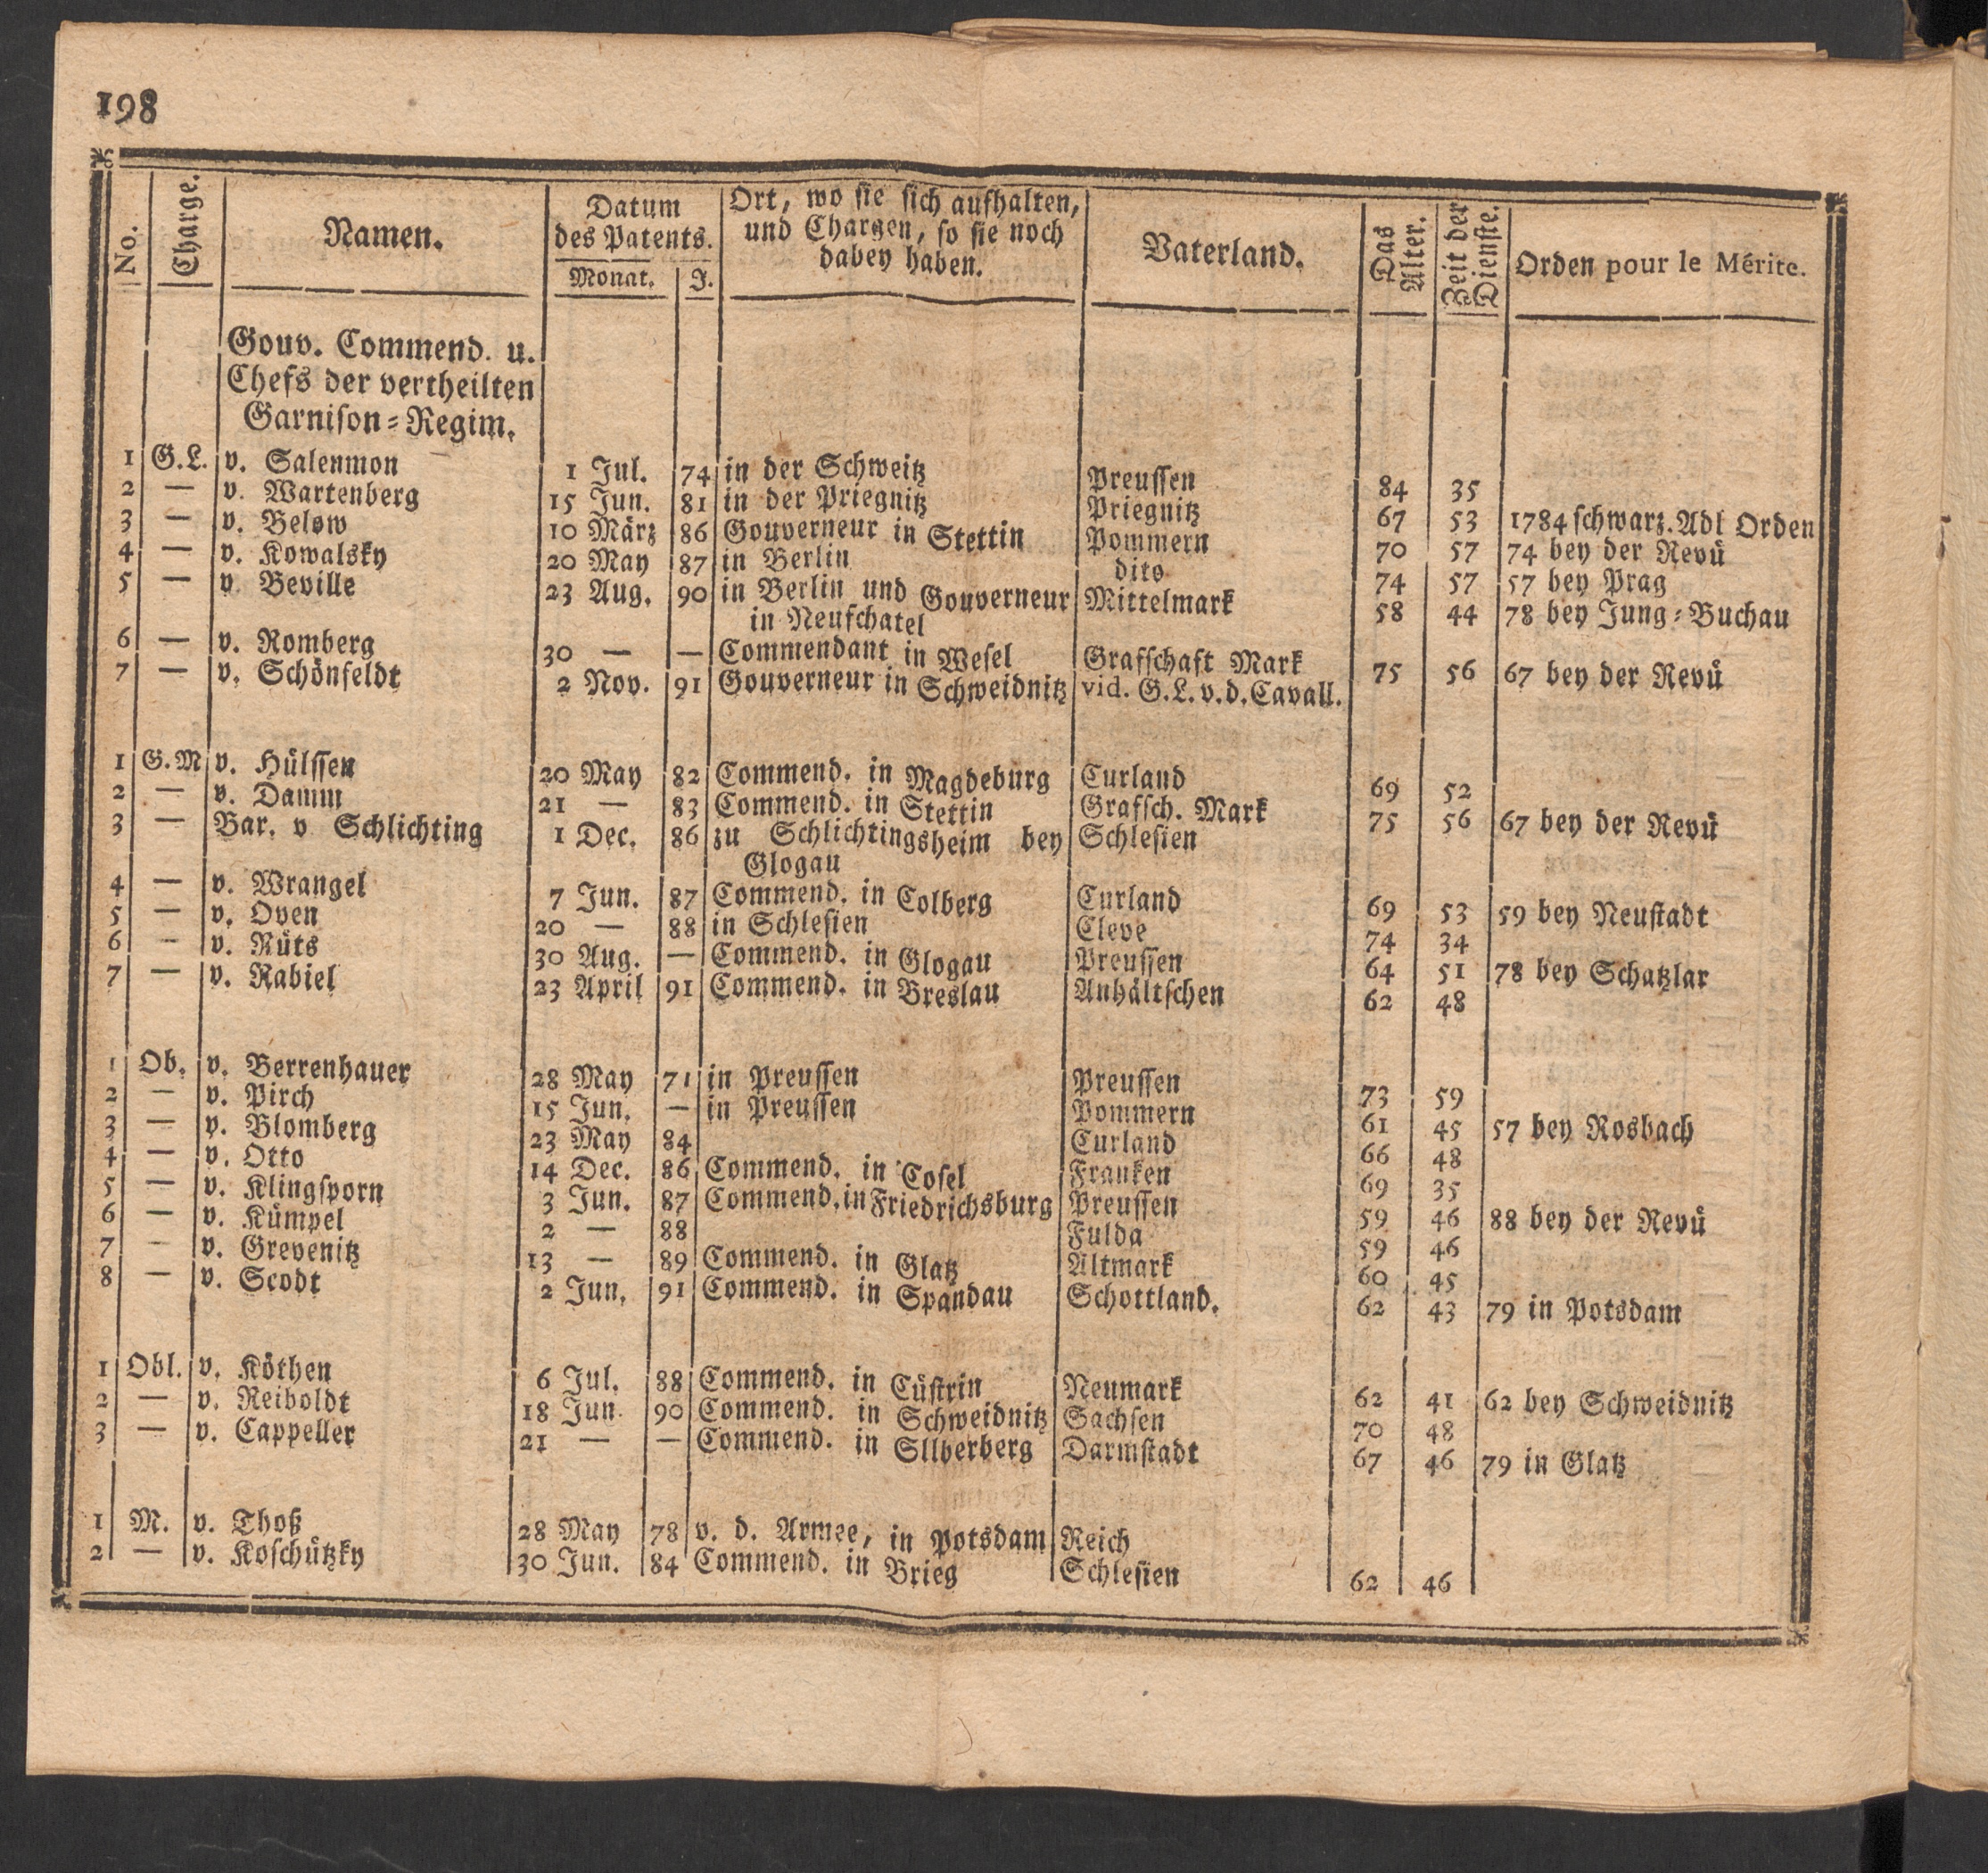 198
No. Charge. Namen. Datum des Patents. Monat. J. Ort, wo sie sich aufhalten, und Chargen, so sie noch dabey haben. Vaterland. Das Alter. Zeit der Dienste. Orden pour le Mérite.
Gouv. Commend. u.
Chefs der vertheilten
Garnison-Regim.
1 G.L. v. Salenmon 1 Jul. 74 in der Schweitz Preussen 84 35
2 — v. Wartenberg 15 Jun. 81 in der Priegnitz Priegnitz 67 53 1784 schwarz. Adl Orden
3 — v. Below 10 März 86 Gouverneur in Stettin Pommern 70 57 74 bey der Revü
4 — v. Kowalsky 20 May 87 in Berlin dito 74 57 57 bey Prag
5 — v Beville 23 Aug. 90 in Berlin und Gouverneur Mittelmark 58 44 78 bey Jung-Buchau
in Neufchatel
6 — v. Romberg 30 — — Commendant in Wesel Grafschaft Mark 75 56 67 bey der Revü
7 — v. Schönfeldt 2 Nov. 91 Gouverneur in Schweidnitz vid. G.L.v.d.Cavall.
1 G.M v. Hülssen 20 May 82 Commend. in Magdeburg Curland 69 52
2 — v. Damm 21 — 83 Commend. in Stettin Grafsch. Mark 75 56 67 bey der Revü
3 — Bar. v Schlichting 1 Dec. 86 zu Schlichtingsheim bey Schlesien
Glogau
4 — v. Wrangel 7 Jun. 87 Commend. in Colberg Curland 69 53 59 bey Neustadt
5 — v. Oven 20 — 88 in Schlesien Cleve 74 34
6 — v. Rüts 30 Aug. — Commend. in Glogau Preussen 64 51 78 bey Schatzlar
7 — v. Rabiel 23 April 91 Commend. in Breslau Anhältschen 62 48
1 Ob. v. Berrenhauer 28 May 71 in Preussen Preussen 73 59
2 — v. Pirch 15 Jun. — in Preussen Pommern 61 45 57 bey Rosbach
3 — v. Blomberg 23 May 84 Curland 66 48
4 — v. Otto 14 Dec. 86 Commend. in Cosel Franken 69 35
5 — v. Klingsporn 3 Jun. 87 Commend. in Friedrichsburg Preussen 59 46 88 bey der Revü
6 — v. Kümpel 2 — 88 Fulda 59 46
7 — v. Grevenitz 13 — 89 Commend. in Glatz Altmark 60 45
8 — v. Scodt 2 Jun. 91 Commend. in Spandau Schottland. 62 43 79 in Potsdam
1 Obl. v. Köthen 6 Jul. 88 Commend. in Cüstrin Neumark 62 41 62 bey Schweidnitz
2 — v. Reiboldt 18 Jun 90 Commend. in Schweidnitz Sachsen 70 48
3 — v. Cappeller 21 — — Commend. in Sllberberg Darmstadt 67 46 79 in Glatz
1 M. v. Thoß 28 May 78 v. d. Armee, in Potsdam Reich
2 — v. Koschützky 30 Jun. 84 Commend. in Brieg Schlesien 62 46